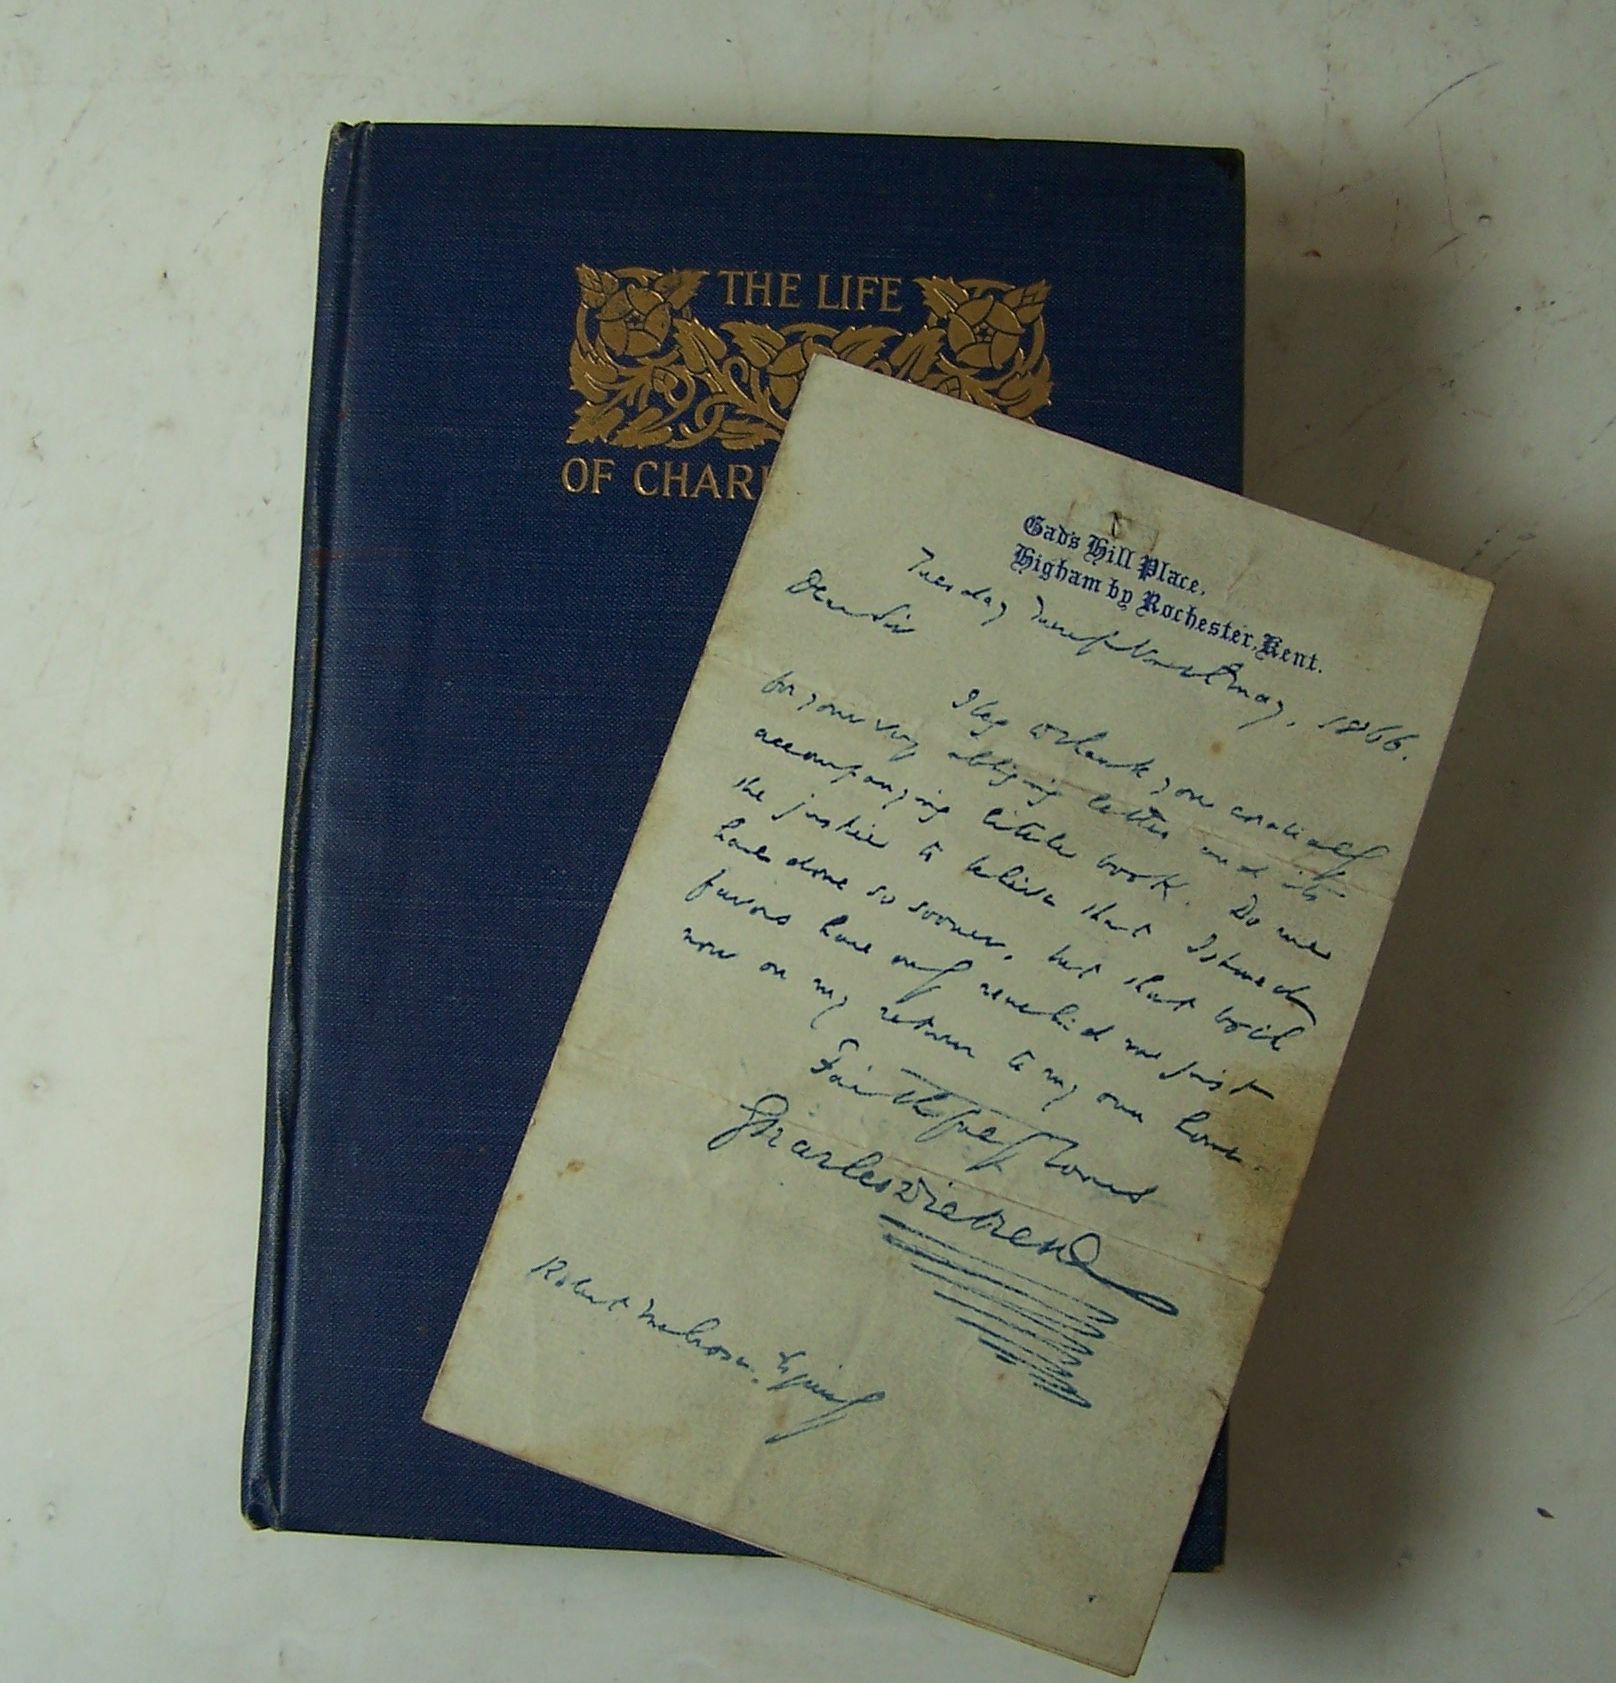 THE LIFE
OF CHARL
Gad's Hill Place,
Higham by Rochester, Kent.
Tuesday Twenty Ninth May, 1866.
Dear Sir
I beg to thank you cordially
for your very obliging letter and its
accompanying little book. Do me
the justice to believe that I should
have done so sooner, but that both
favors have only reached me just
now on my return to my own home.
Faithfully Yours
Charles Dickens
Robert Melrose. Esquire